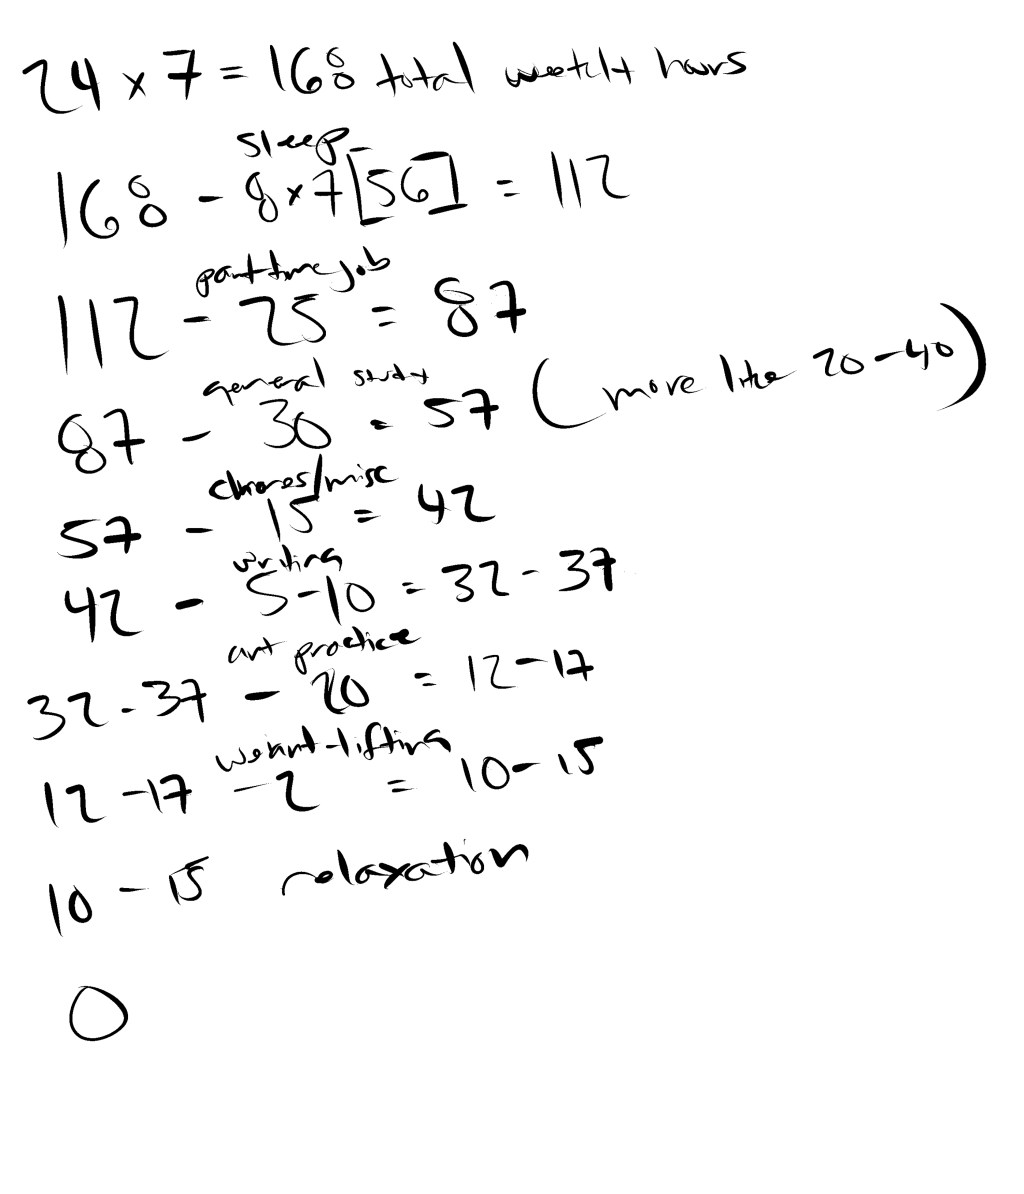 24 x 7 = 168 total hours
sleep
168 - 8 x 7 [56] = 112
part time job
112 - 25 = 87
general study
87 - 30 = 57 (more like 20-40)
chores/misc
57 - 15 = 42
writing
42 - 5-10 = 32-37
art practice
32-37 - 20 = 12-17
-lifting
12-17 - 2 = 10-15
10-15 relaxation
0